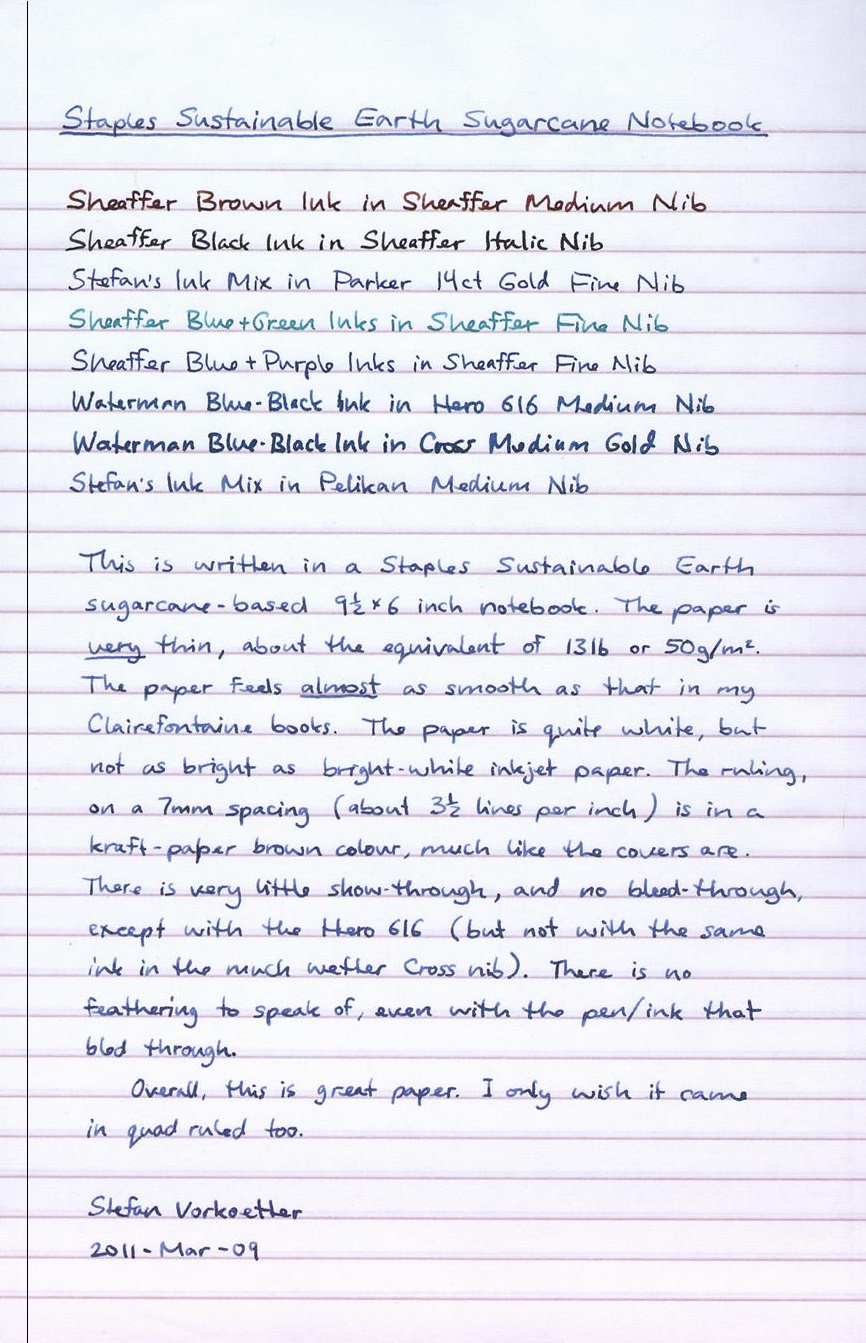 Staples Sustainable Earth Sugarcane Notebook
Sheaffer Brown Ink in Sheaffer Medium Nib
Sheaffer Black Ink in Sheaffer Italic Nib
Stefan's Ink Mix in Parker 14ct Gold Fine Nib
Sheaffer Blue+Green Inks in Sheaffer Fine Nib
Sheaffer Blue+Purple Inks in Sheaffer Fine Nib
Waterman Blue-Black Ink in Hero 616 Medium Nib
Waterman Blue-Black Ink in Cross Medium Gold Nib
Stefan's Ink Mix in Pelikan Medium Nib
This is written in a Staples Sustainable Earth
sugarcane-based 9½ × 6 inch notebook. The paper is
very thin, about the equivalent of 13lb or 50g/m².
The paper feels almost as smooth as that in my
Clairefontaine books. The paper is quite white, but
not as bright as bright-white inkjet paper. The ruling,
on a 7mm spacing (about 3½ lines per inch) is in a
kraft-paper brown colour, much like the covers are.
There is very little show-through, and no bleed-through,
except with the Hero 616 (but not with the same
ink in the much wetter Cross nib). There is no
feathering to speak of, even with the pen/ink that
bled through.
Overall, this is great paper. I only wish it came
in quad ruled too.
Stefan Vorkoetter
2011-Mar-09